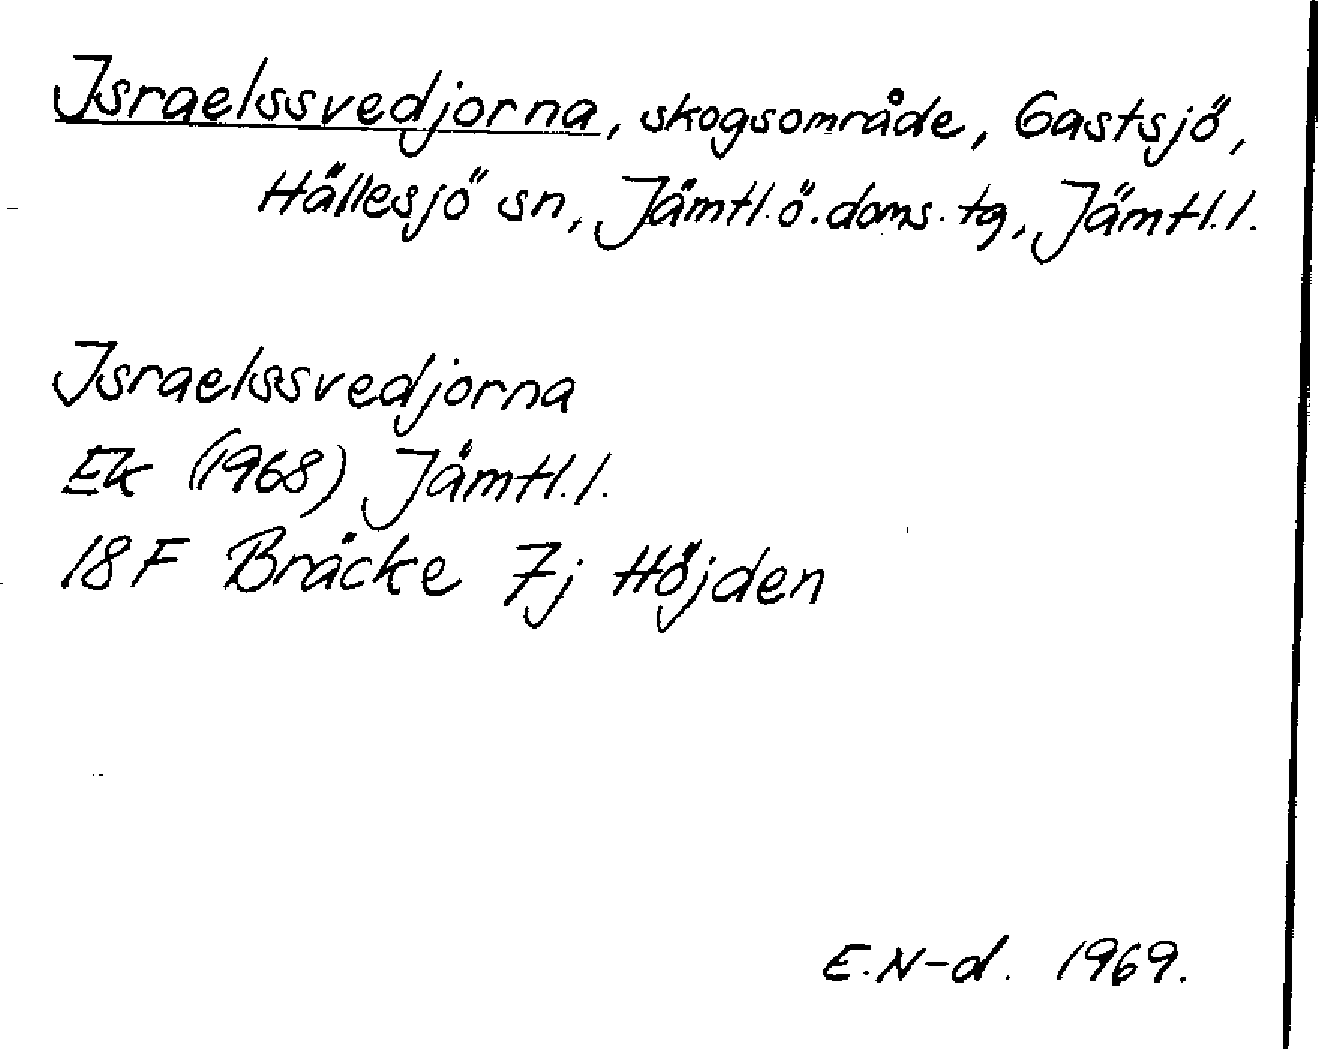 Israelssvedjorna, skogsområde, Gastsjö,
Hällesjö sn, Jämtl.ö.doms.tg, Jämtl.l.
Israelssvedjorna
Ek (1968) Jämtl.l.
18F Bräcke 7j Höjden
E.N-d. 1969.